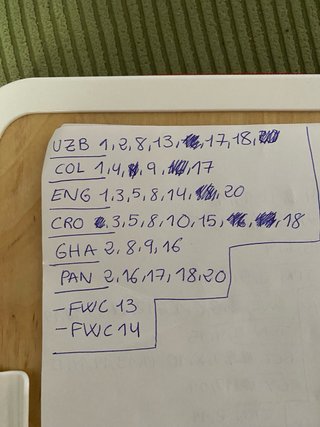 UZB 1,2,8,13, 17,18,
COL 1,4, 9, 17
ENG 1,3,5,8,14, 20
CRO 3,5,8,10,15, 18
GHA 2,8,9,16
PAN 2,16,17,18,20
-FWC 13
-FWC 14